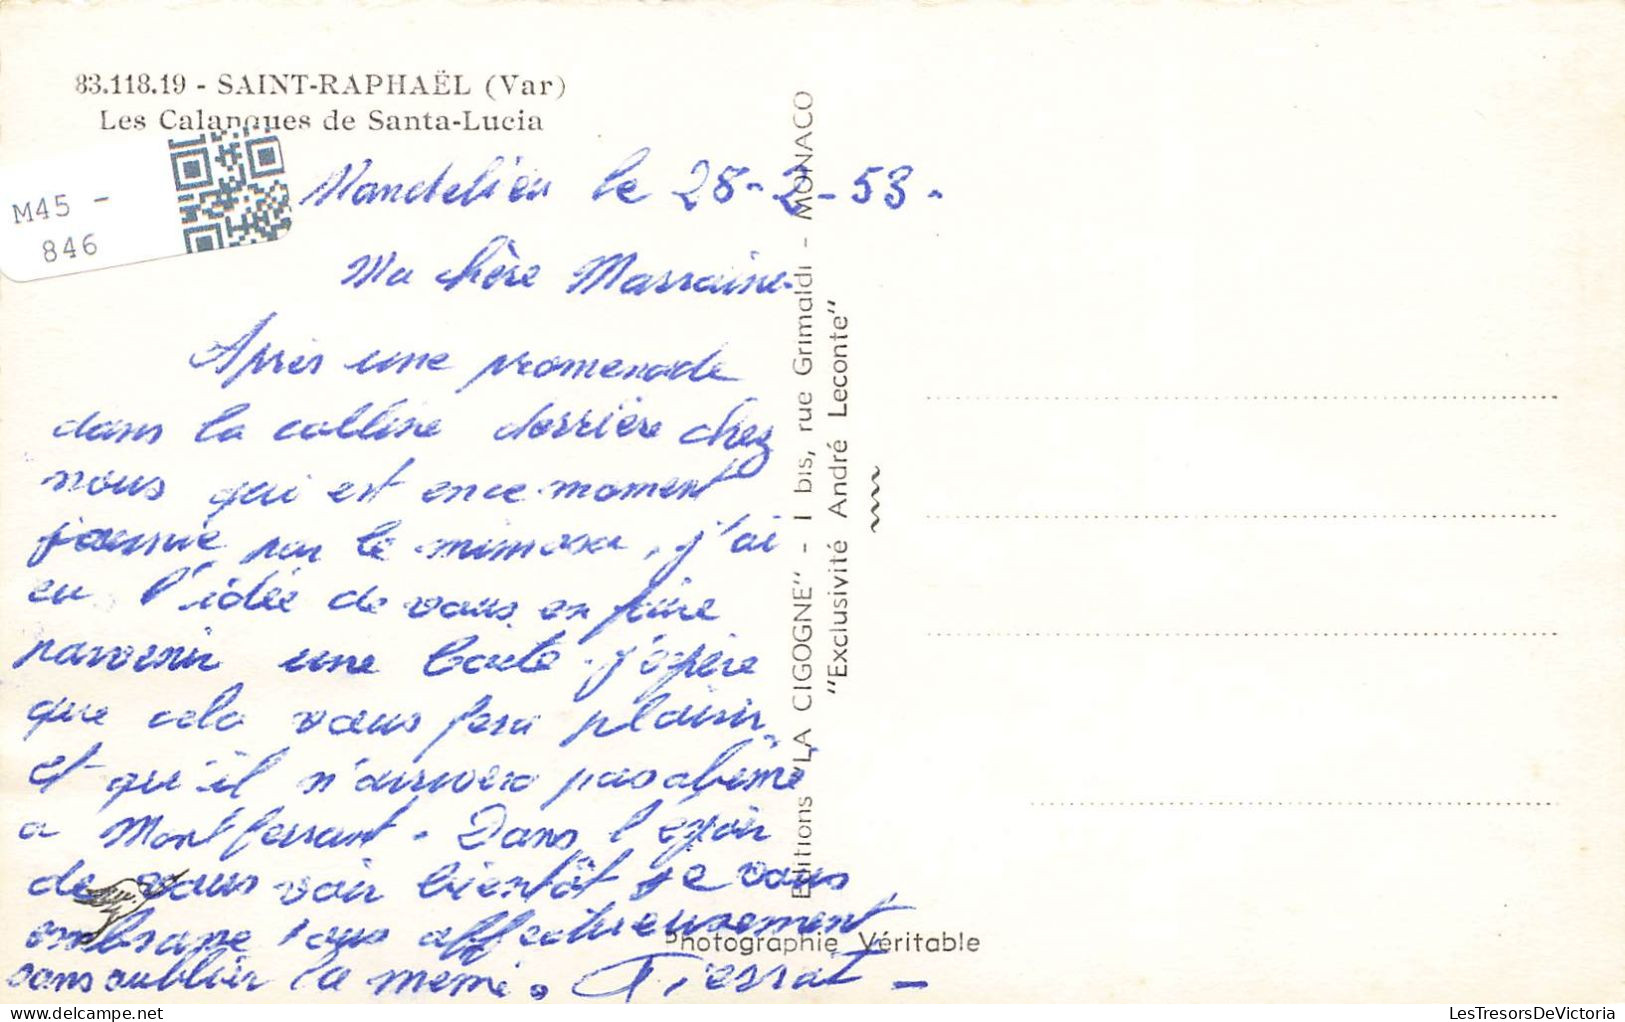 83.118.19 - SAINT-RAPHAËL (Var)
Les Calanques de Santa-Lucia
M45 -
846
Mandelieu le 28-2-53.
Ma chère Marraine.
Après une promenade
dans la colline derrière chez
nous qui est en ce moment
jaunie par le mimosa, j'ai
eu l'idée de vous en faire
parvenir une boite. j'espère
que cela vous fera plaisir,
et qu'il n'arrivera pas abîmé
a Montferrant. Dans l'espoir
de vous voir bientôt je vous
embrasse tous affectueusement,
sans oublier la mémé. Pierrot
Editions "LA CIGOGNE" - 1 bis, rue Grimaldi - MONACO
"Exclusivité André Leconte"
Photographie Véritable
LesTresorsDeVictoria